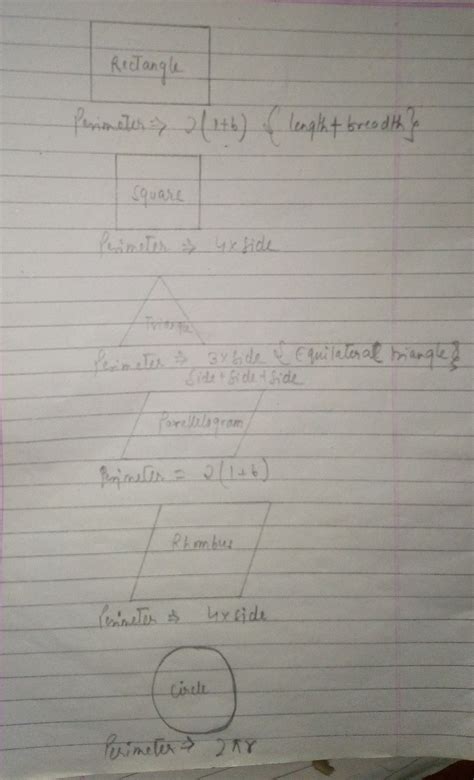 Rectangle
Perimeter ⇒ 2(l+b) {length + breadth}
Square
Perimeter ⇒ 4×side
Triangle
Perimeter ⇒ 3×side {Equilateral triangle}
side + side + side
Parallelogram
Perimeter = 2(l+b)
Rhombus
Perimeter ⇒ 4×side
Circle
Perimeter ⇒ 2πr